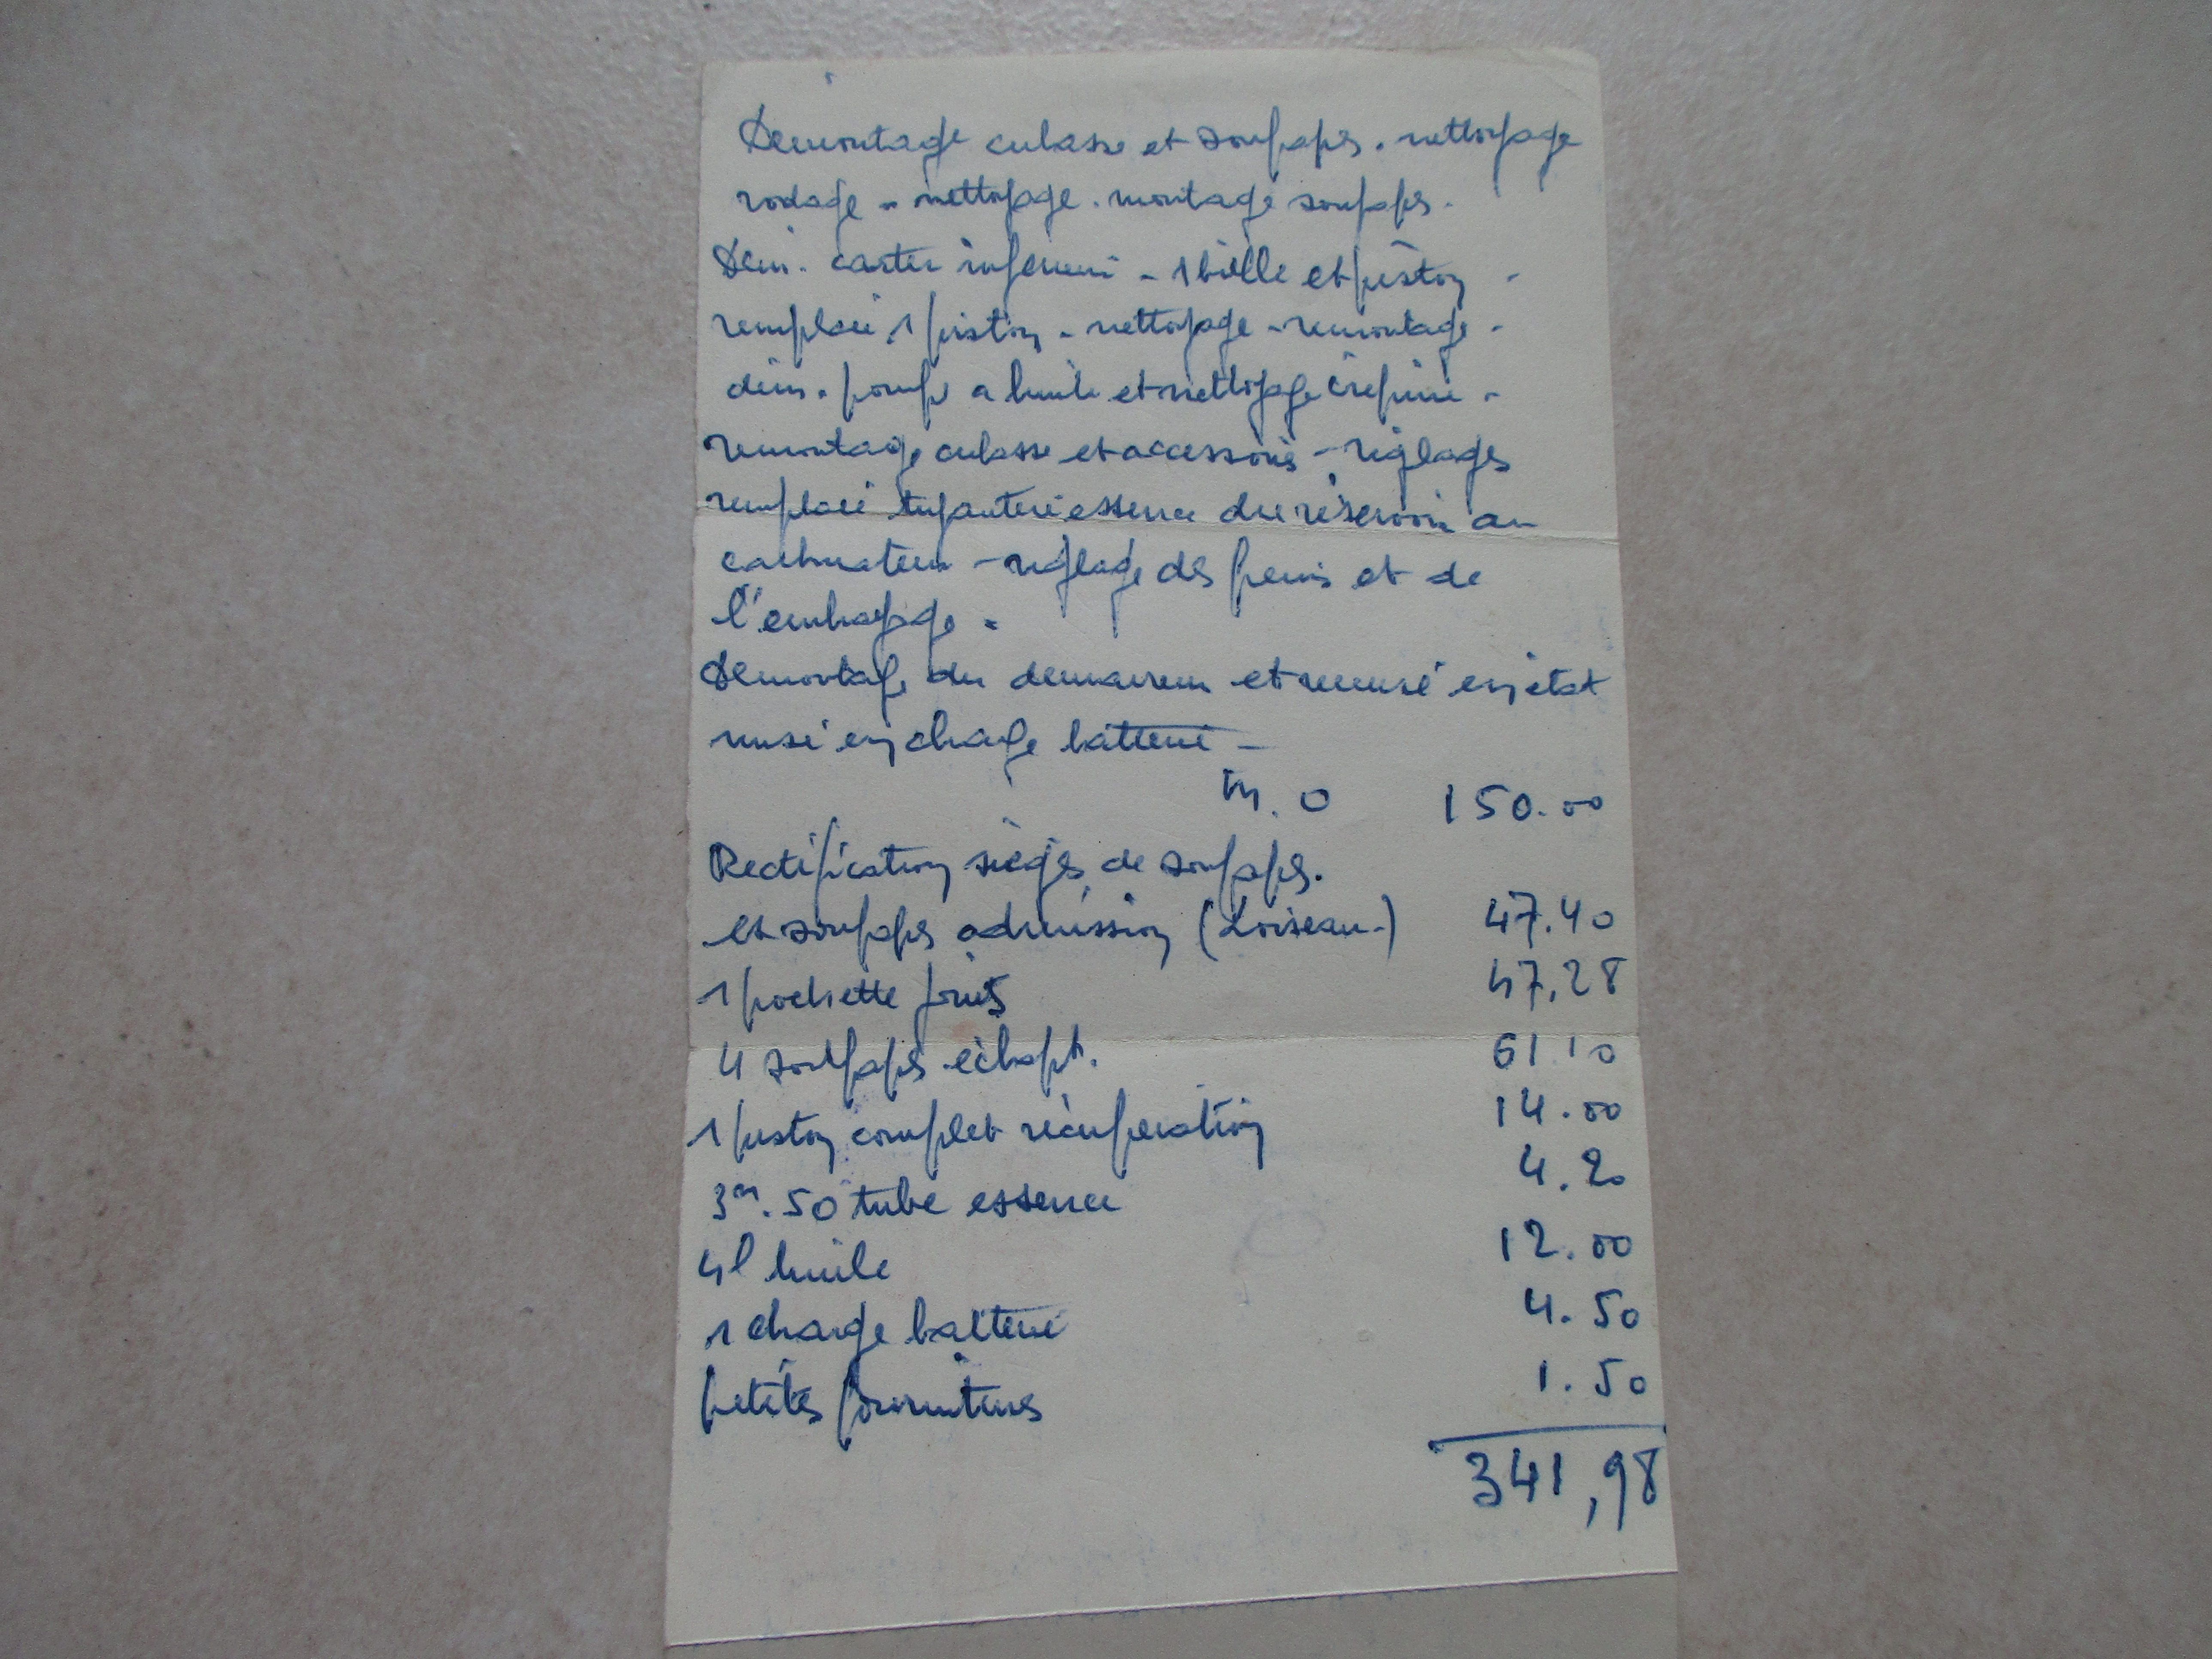 Demontage culasse et soupapes. nettoyage
rodage - nettoyage. montage soupapes.
Dem. carter inferieur - 1 bielle et piston -
remplacé 1 piston - nettoyage - remontage -
dém. pompe a huile et nettoyage crépine -
remontage culasse et accessoires - réglages
remplacé tuyauterie essence du réservoir au
carburateur - réglage des freins et de
l'embrayage.
Demontage du demarreur et remise en état
mise en charge batterie -
M. O 150.00
Rectification sièges de soupapes.
et soupapes admission (Loiseau.) 47.40
1 pochette joints 47,28
4 soupapes échapt. 61.10
1 piston complet récupération 14.00
3m.50 tube essence 4.20
4l huile 12.00
1 charge batterie 4.50
petites fournitures 1.50
341,98